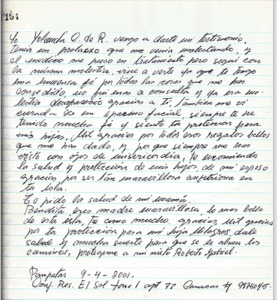 164
Yo Yolanda O. de R. vengo a darte mi testimonio,
tenía un prolapso que me venía molestando, y
el médico me puso en tratamiento pero seguí con
la misma molestia, vine a verte ya que te tengo
una inmensa fé por todas las cosas que me has
concedido, no fui mas a consulta y ya esa mo-
lestia desapareció gracias a ti. También me vi
curada de mi siempre te he
tenido mucha fé y siento tu protección para
mis hijos. Mil gracias por todos esos regalos bellos
que me has dado, y por que siempre me has
visto con ojos de misericordia, te encomiendo
la salud y protección de mis hijos de mi esposo
gracias por ser tan maravillosa
tu Isla.
Te pido la salud de mi mamá.
Bendita eres madre maravillosa lo mas bello
de esta Isla, te amo mucho, gracias, Mil gracias
por tu protección para mi hija Milagros, dale
salud y mucha suerte para que se le abran los
caminos, protégeme a mi nieto Roberto Gabriel.
Pampatar 9-4-2001.
Conj. Res. El Sol apt 72